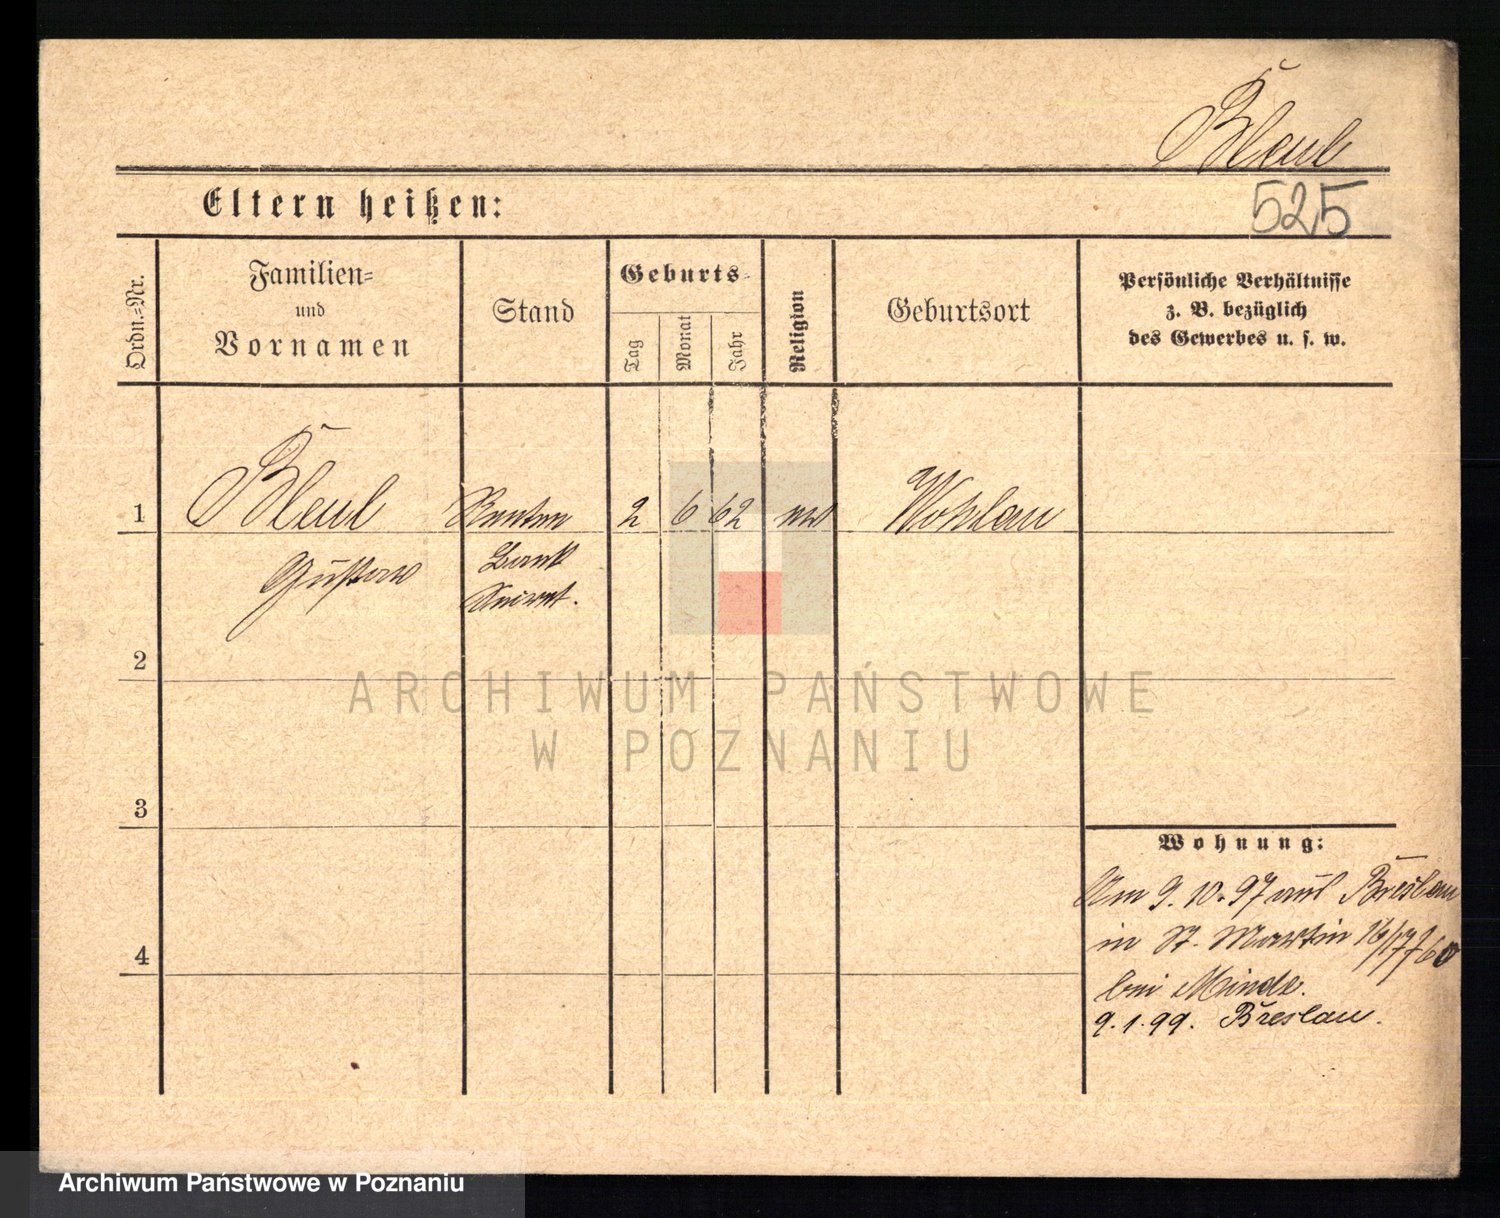 Bleul
525
Eltern heißen:
Ordn.=Nr.
Familien=
und
Vornamen
Stand
Geburts=
Tag
Monat
Jahr
Religion
Geburtsort
Persönliche Verhältnisse
z. B. bezüglich
des Gewerbes u. s. w.
1
Bleul
Renten
2
6
62
Wohlau
Gustav
Bank
2
ARCHIWUM PAŃSTWOWE
W POZNANIU
3
Wohnung:
Am 9.10.97 aus Breslau
in St. Martin 16/17
4
bei Minde.
9.1.99. Breslau.
Archiwum Państwowe w Poznaniu